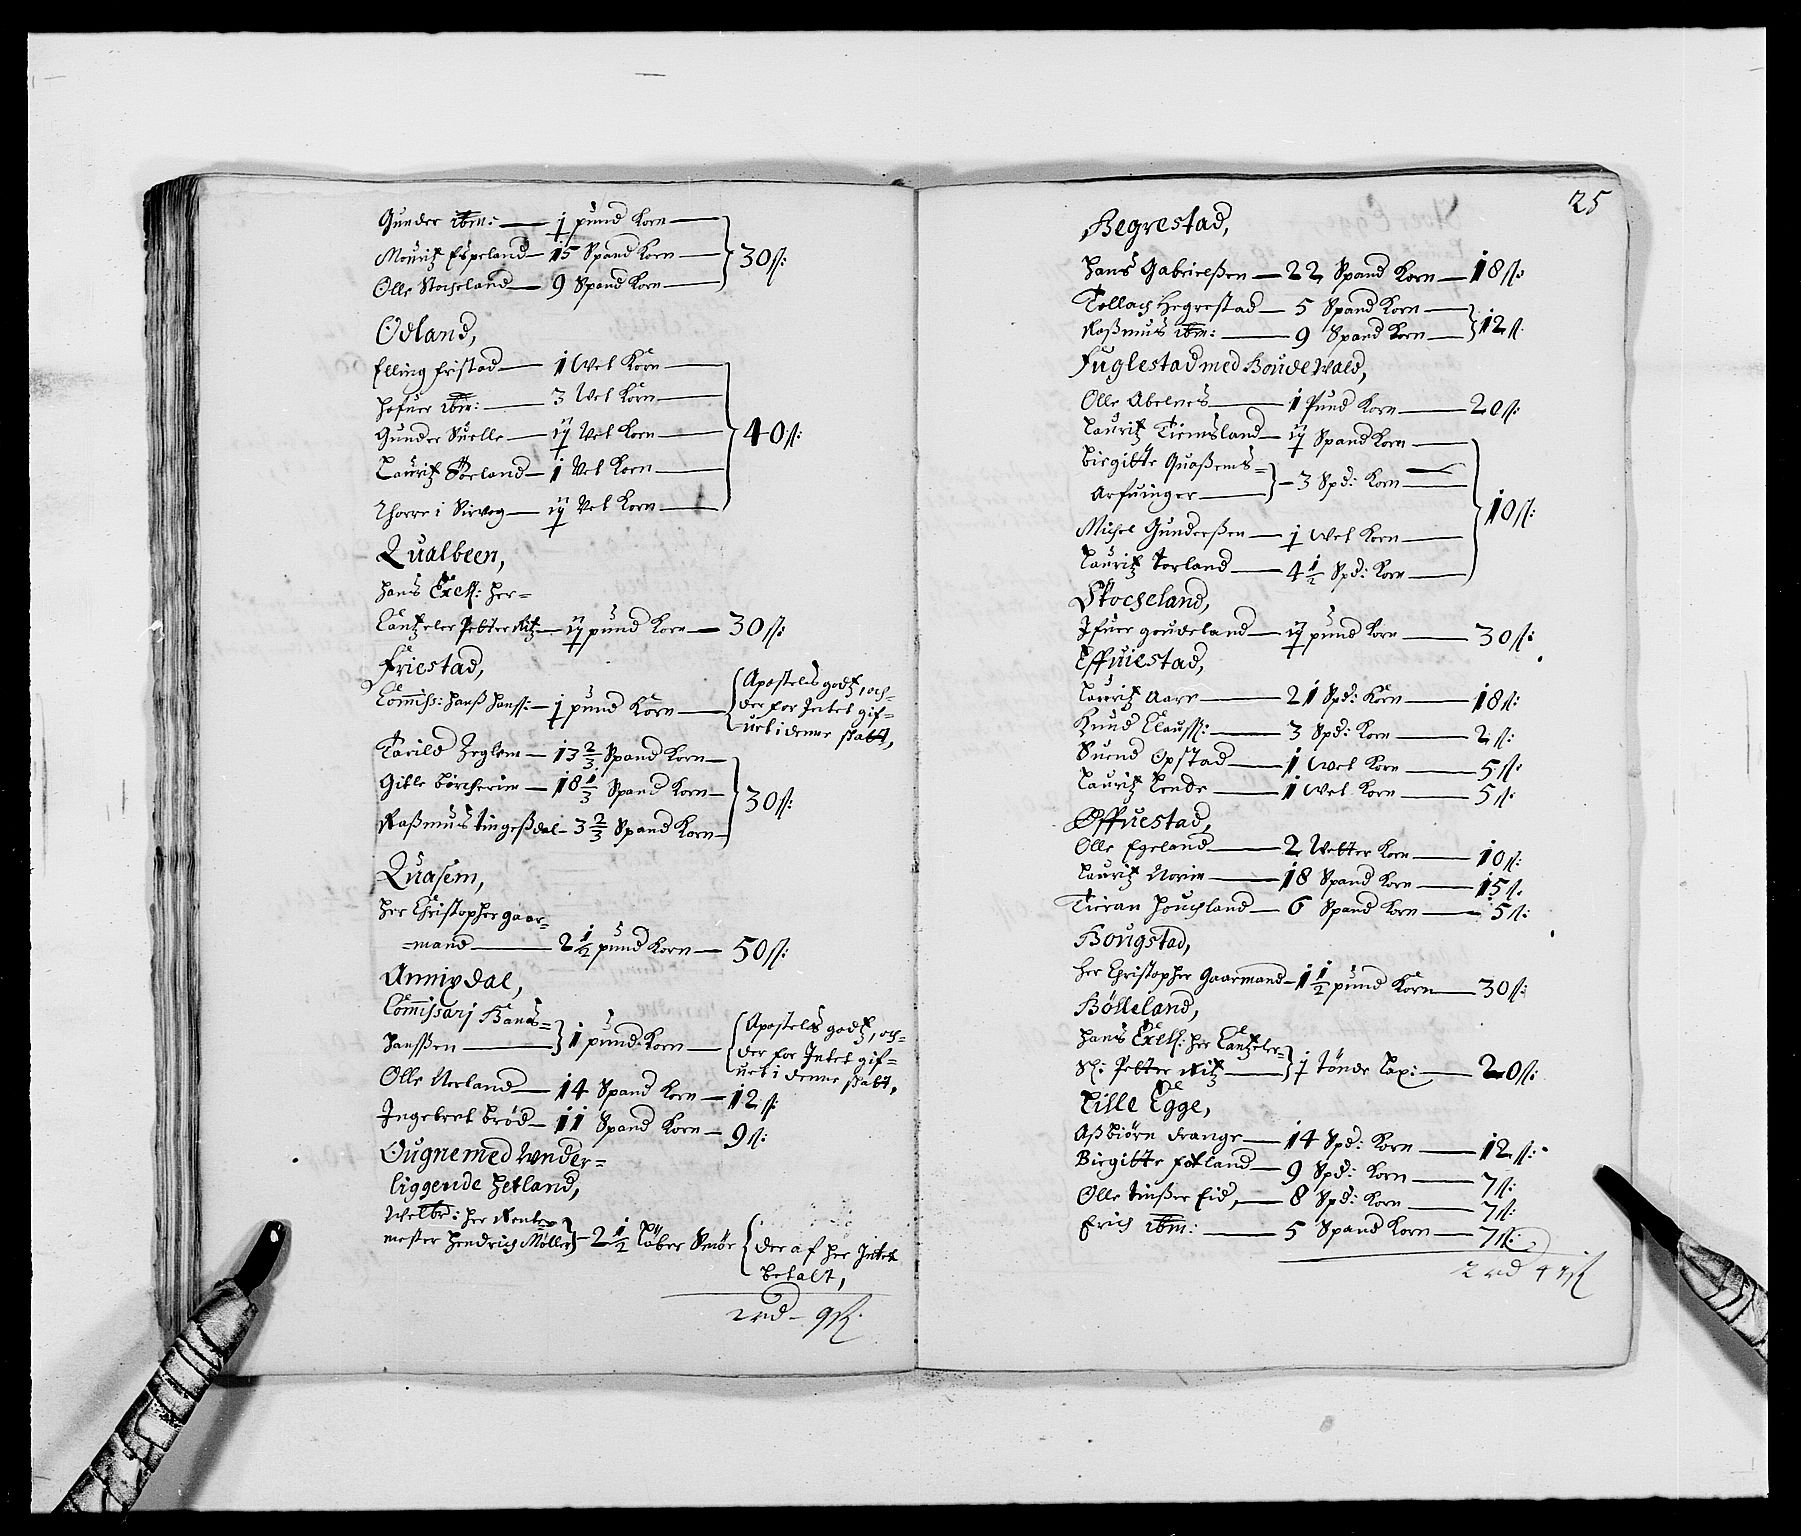 Gunder ibm: — j pund Korn —
Mouritz Espeland — 15 Spand Korn — } 30 ß:
Olle Stocheland — 9 Spand Korn —
Odland,
Elling Fristad — 1 Wet Korn —
Hofuer ibm: — 3 Wet Korn —
Gunder Suelle — ij Vet Korn — } 40 ß:
Lauritz Øeland — 1 Vet Korn —
Thorre i Sirvog — ij Vet Korn —
Qualbeen,
Hans Excell: Her=
Cantzeler Petter Ritz — ij pund Korn — 30 ß:
Friestad,
Commiss: Hanß Hanss: — j pund Korn — { Apostels godtz, och=
der for Intet gif=
uet i denne skatt,
Tarild Zeglem — 13 2/3 Spand Korn —
Gitle Børcheim — 18 1/3 Spand Korn — } 30 ß:
Raßmus Tingeßdal — 3 2/3 Spand Korn —
Quasem,
Her Christopher Gaar=
=mand — 2 1/2 pund Korn — 50 ß:
Annivdal,
Comissarj Hans=
Hanssen — } 1 pund Korn — { Apostels godtz, och=
der for Intet gif=
uet i denne skatt,
Olle Nerland — 14 Spand Korn — 12 ß
Ingebret Brød — 11 Spand Korn — 9 ß:
Ougne med Vnder=
liggende Hetland,
Welbr: Her Rente=
mester Hendrich Møller } — 2 1/2 Løber Smør { der af her Intet
betalt,
2 rd — 9 ß:
25
Hegrestad,
Hans Gabrielßen — 22 Spand Korn — 18 ß:
Tollach Hegrestad — 5 Spand Korn —
Raßmus ibm: — 9 Spand Korn — } 12 ß:
Fuglestad med Boudewald,
Olle Abelnes — 1 Pund Korn — 20 ß:
Lauritz Tiemsland — ij Spand Korn —
Birgitte Quaßems=
Arfuinger — } — 3 Spd: Korn — } 10 ß:
Michel Gunderßen — j Wet Korn —
Lauritz Torland — 4 1/2 Spd: Korn —
Stocheland,
Ifuer Goudeland — ij pund Korn — 30 ß:
Effuiestad,
Lauritz Aarr — 21 Spd: Korn — 18 ß:
Knud Clauss: — 3 Spd: Korn — 2 ß:
Suend Opstad — 1 Wet Korn — 5 ß:
Lauritz Lende — 1 Wet Korn — 5 ß:
Øffuestad,
Olle Egeland — 2 Wetter Korn — 10 ß:
Lauritz Norim — 18 Spand Korn — 15 ß:
Tieran Houchland — 6 Spand Korn — 5 ß:
Hougstad,
Her Christopher Gaarmand — 1 1/2 pund Korn — 30 ß:
Hølleland,
Hans Excell: Her Cantzeler=
Sl: Petter Ritz — } j tønde Lax: — 20 ß:
Lille Egge,
Aßbiørn Frange — 14 Spd: Korn — 12 ß:
Birgitte Fotland — 9 Spd: Korn — 7 ß:
Olle Tinßer Eid, — 8 Spd: Korn — 7 ß:
Erich ibm: — 5 Spand Korn — 7 ß:
2 rd 4 ß